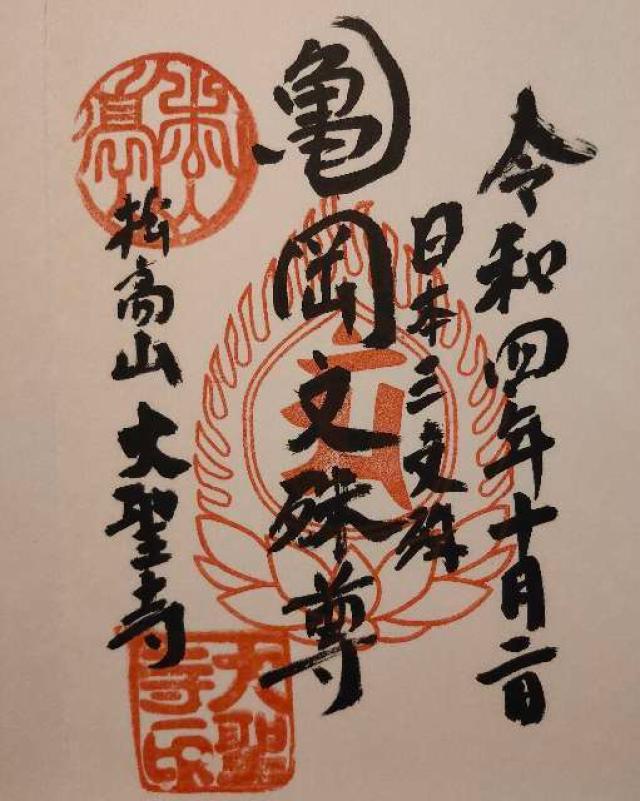 令和四年十月二日
日本三文殊
亀岡文殊尊
松高山 大聖寺
大聖寺印